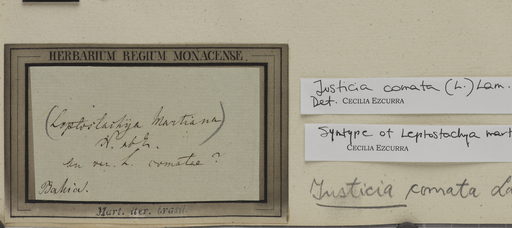 HERBARIUM REGIUM MONACENSE.
(Leptostachya Martiana)
N. ab E.
an var. L. comatae ?
Bahia.
Mart. iter. brasil.
Justicia comata (L.) Lam.
Det. CECILIA EZCURRA
Syntype of Leptostachya mart
CECILIA EZCURRA
Justicia comata La